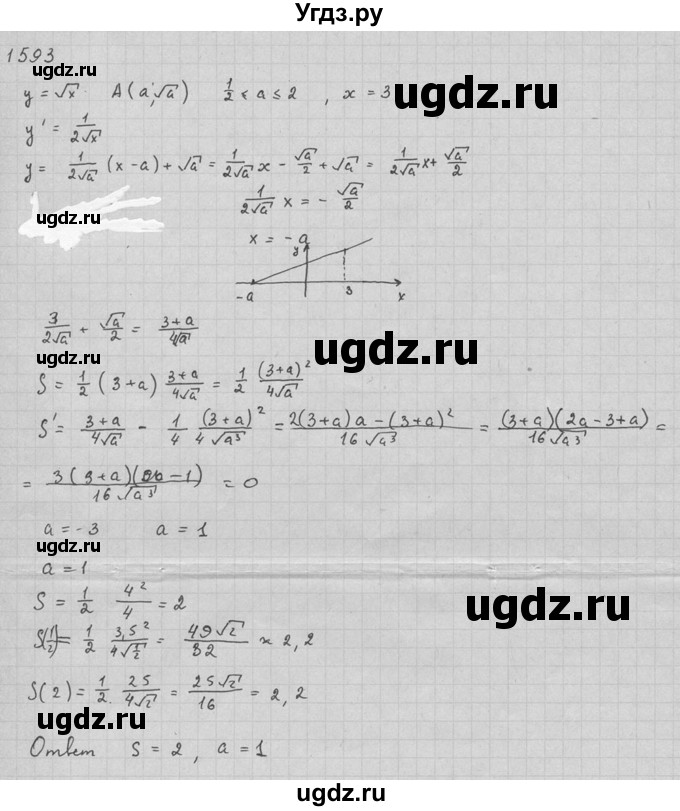 Угдз.ру
1593
y = √x   A(a; √a)   1/2 < a ≤ 2 , x = 3
ugdz.ru
ugdz.ru
y' = 1/(2√x)
y = 1/(2√a) (x-a) + √a = 1/(2√a) x - √a/2 + √a = 1/(2√a) x + √a/2
1/(2√a) x = - √a/2
ugdz.ru
x = -a
y
-a   3   x
3/(2√a) + √a/2 = (3+a)/(4√a)
ugdz.ru
ugdz.ru
S = 1/2 (3+a) (3+a)/(4√a) = 1/2 (3+a)²/(4√a)
S' = (3+a)/(4√a) - 1/4 (3+a)²/(4√a³) = (2(3+a)a - (3+a)²)/(16√a³) = ((3+a)(2a-3+a))/(16√a³) =
= 3(3+a)( -1)/(16√a³) = 0
a = -3   a = 1
ugdz.ru
a = 1
S = 1/2 4²/4 = 2
ugdz.ru
S(1/2) = 1/2 3,5²/(4√(1/2)) = 49√2/32 × 2,2
S(2) = 1/2 25/(4√2) = 25√2/16 = 2,2
ugdz.ru
ugdz.ru
Ответ   S = 2 , a = 1
ugdz.ru
ugdz.ru